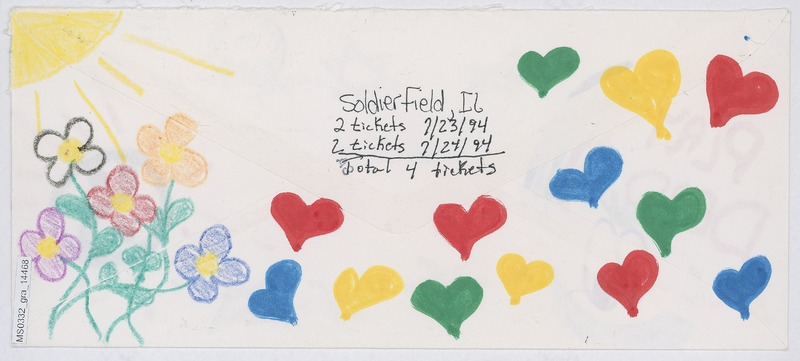 Soldier Field, IL
2 tickets 7/23/94
2 tickets 7/24/94
total 4 tickets
MS0332_gra_14468